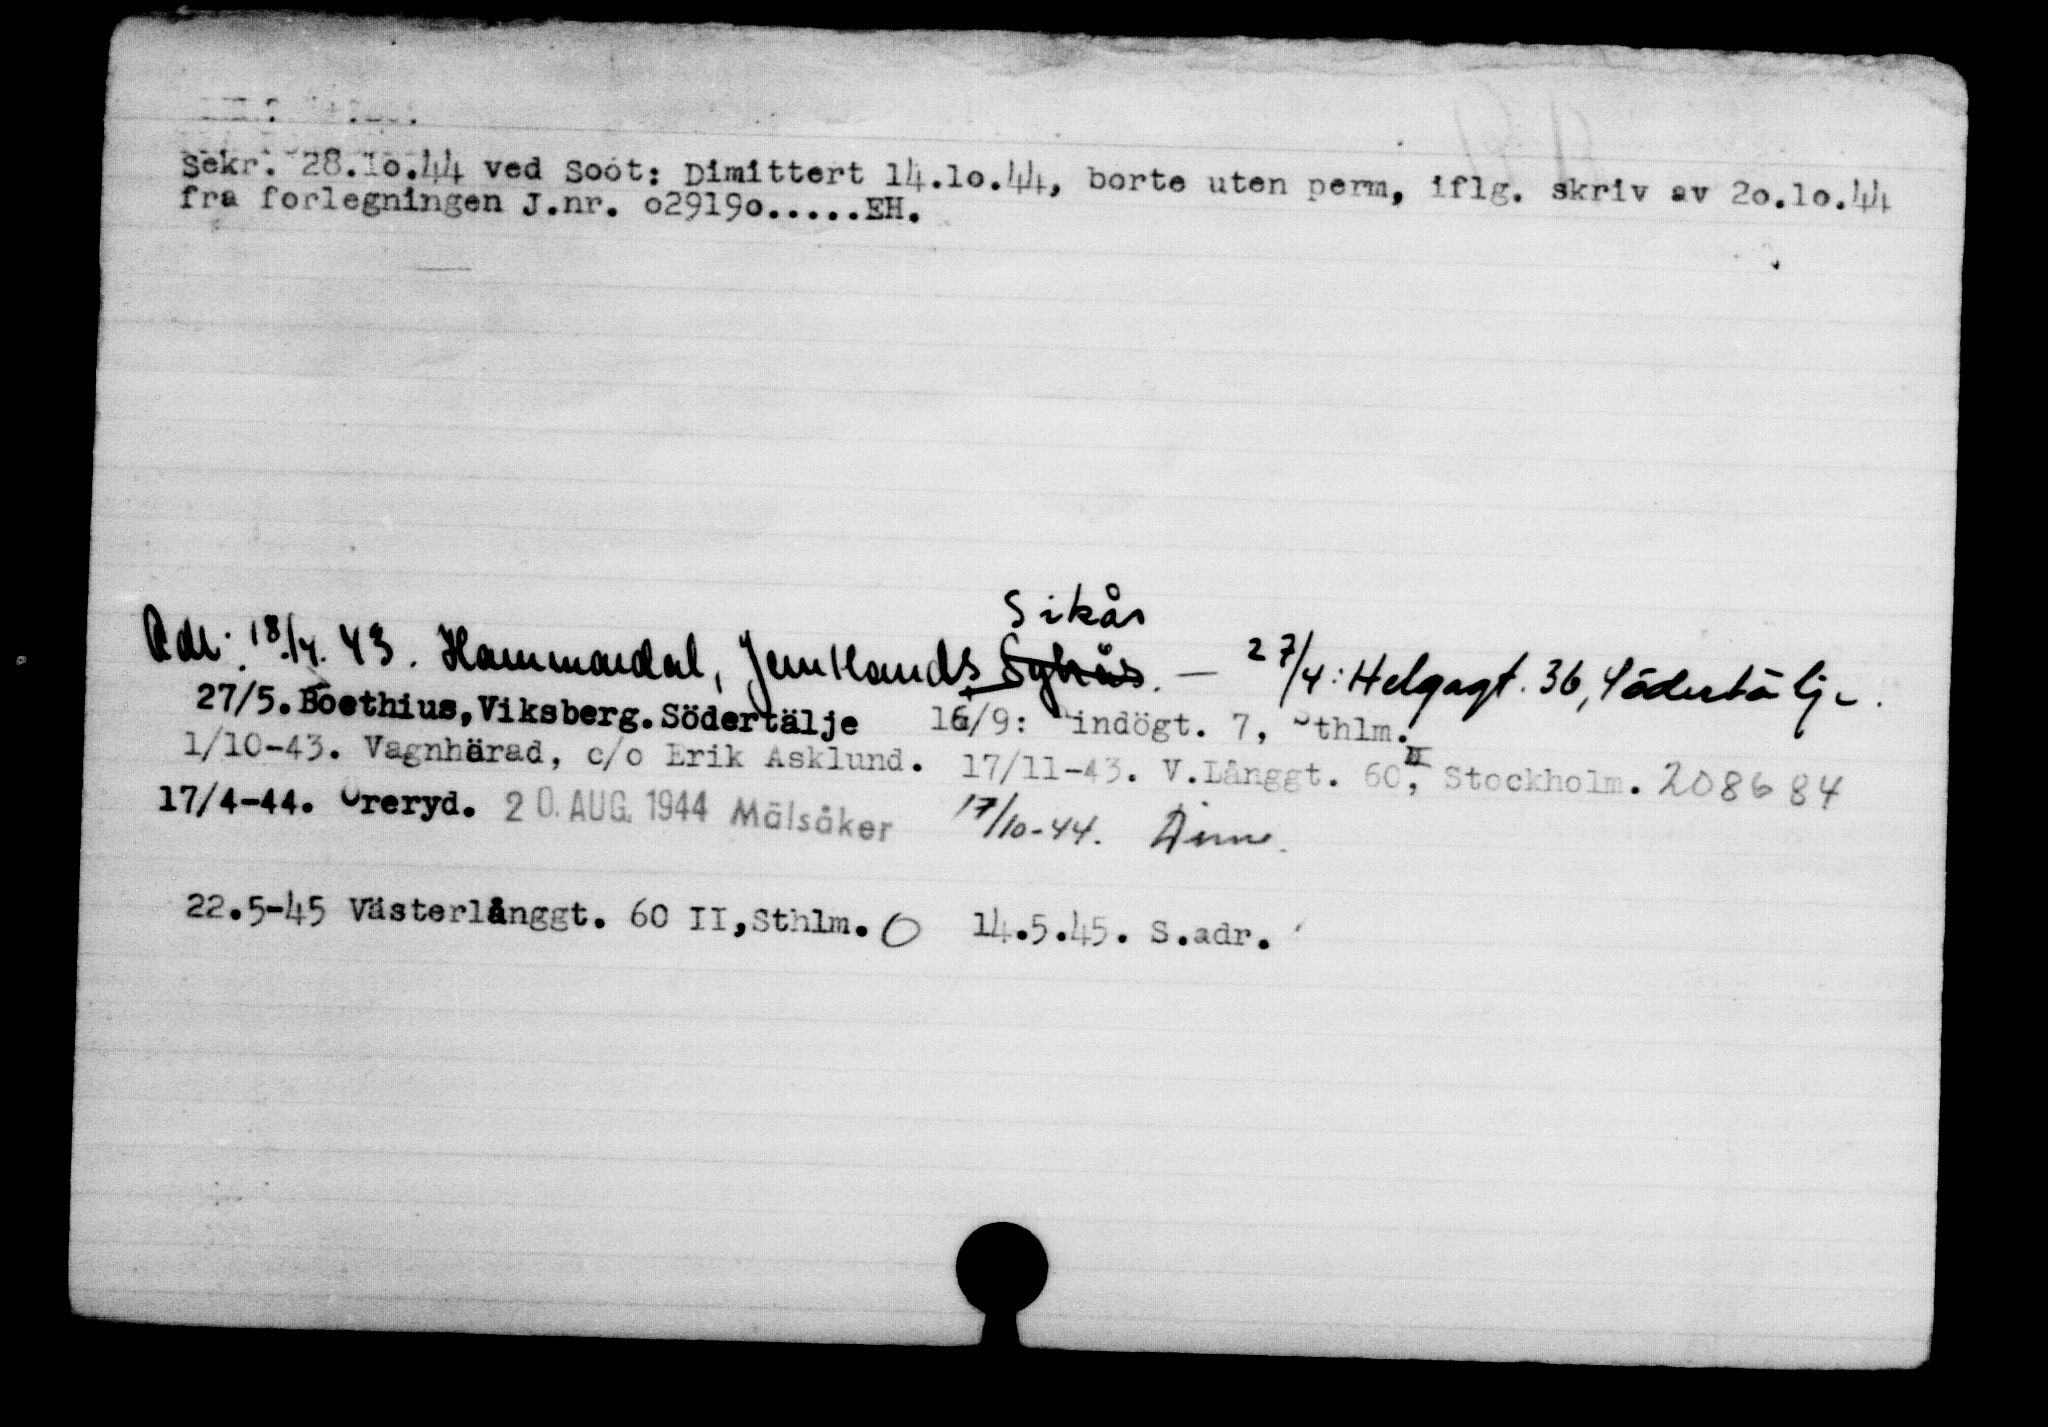 Sekr. 28.10.44 ved Soot: Dimittert 14.10.44, borte uten perm, iflg. skriv av 20.10.44
fra forlegningen J.nr. 029190.....EH.
Sikås
Adr: 18./4. 43. Hammerdal, Jemtlands Sykås. — 27/4: Helgagt. 36, Södertälje.
27/5. Boethius, Viksberg. Södertälje 16/9: indögt. 7, Sthlm.
1/10-43. Vagnhärad, c/o Erik Asklund. 17/11-43. V.Långgt. 60 II, Stockholm. 208684
17/4-44. Öreryd. 20. AUG. 1944 Mälsåker 17/10-44. Dim.
22.5-45 Västerlånggt. 60 II, Sthlm. O 14.5.45. S.adr.